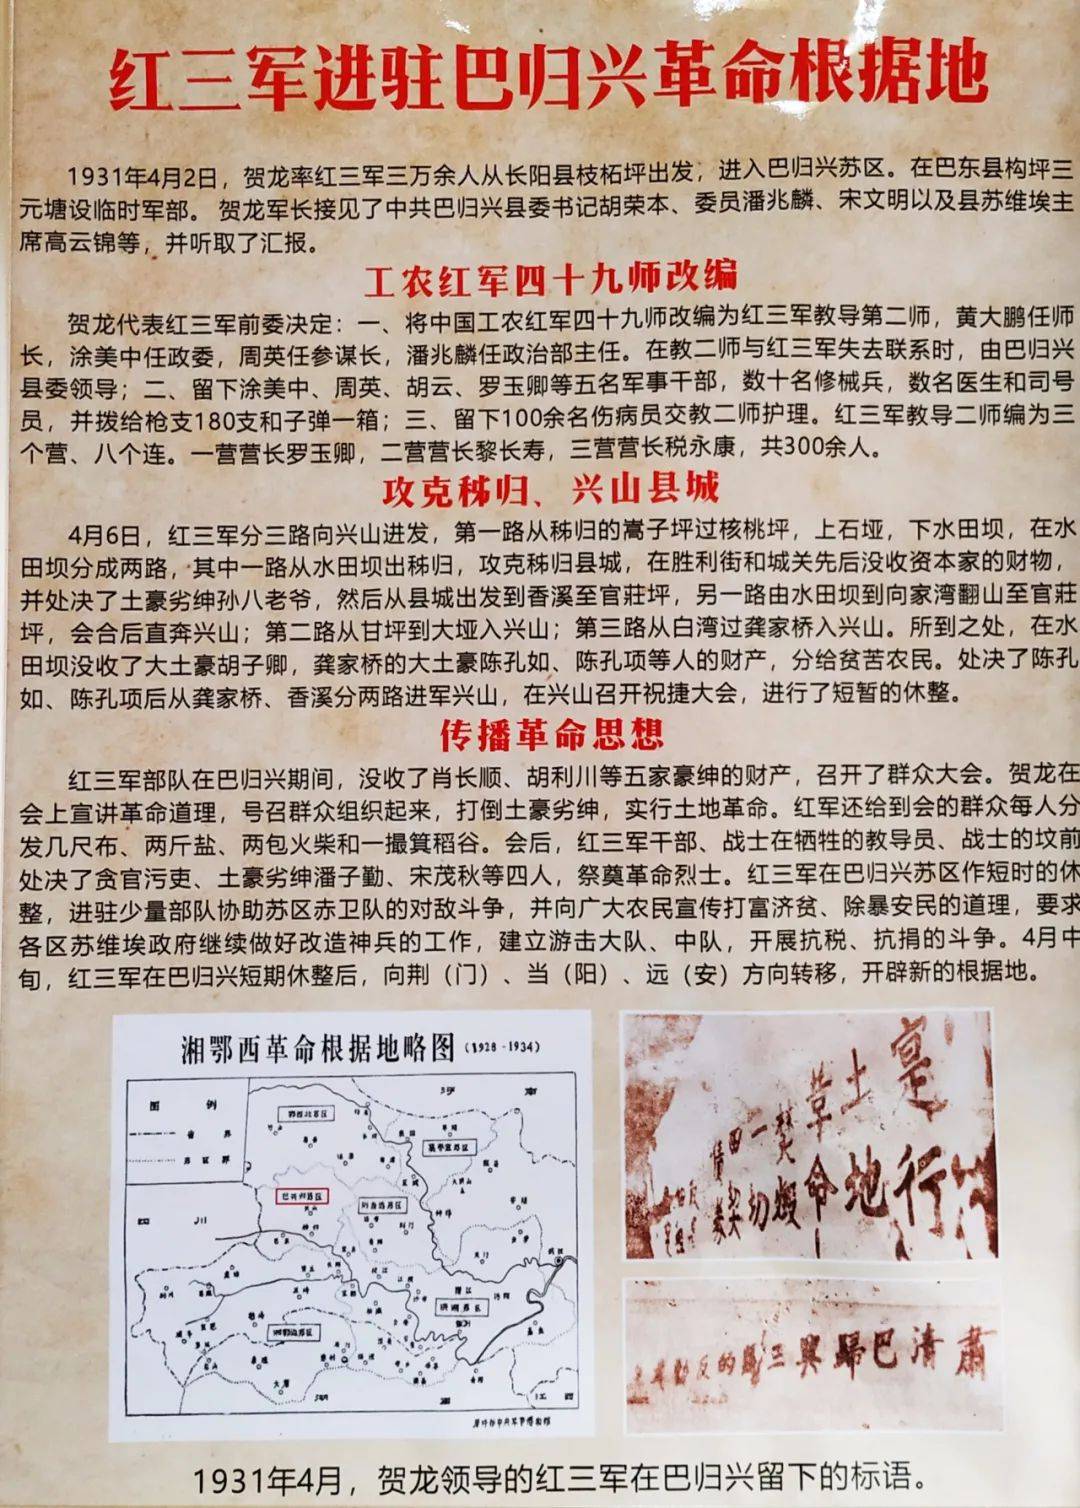 红三军进驻巴归兴革命根据地
1931年4月2日，贺龙率红三军三万余人从长阳县枝柘坪出发，进入巴归兴苏区。在巴东县构坪三
元塘设临时军部。 贺龙军长接见了中共巴归兴县委书记胡荣本、委员潘兆麟、宋文明以及县苏维埃主
席高云锦等，并听取了汇报。
工农红军四十九师改编
贺龙代表红三军前委决定：一、将中国工农红军四十九师改编为红三军教导第二师，黄大鹏任师
长，涂美中任政委，周英任参谋长，潘兆麟任政治部主任。在教二师与红三军失去联系时，由巴归兴
县委领导；二、留下涂美中、周英、胡云、罗玉卿等五名军事干部，数十名修械兵，数名医生和司号
员，并拨给枪支180支和子弹一箱；三、留下100余名伤病员交教二师护理。红三军教导二师编为三
个营、八个连。一营营长罗玉卿，二营营长黎长寿，三营营长税永康，共300余人。
攻克秭归、兴山县城
4月6日，红三军分三路向兴山进发，第一路从秭归的嵩子坪过核桃坪，上石垭，下水田坝，在水
田坝分成两路，其中一路从水田坝出秭归，攻克秭归县城，在胜利街和城关先后没收资本家的财物，
并处决了土豪劣绅孙八老爷，然后从县城出发到香溪至官莊坪，另一路由水田坝到向家湾翻山至官莊
坪，会合后直奔兴山；第二路从甘坪到大垭入兴山；第三路从白湾过龚家桥入兴山。所到之处，在水
田坝没收了大土豪胡子卿，龚家桥的大土豪陈孔如、陈孔项等人的财产，分给贫苦农民。处决了陈孔
如、陈孔项后从龚家桥、香溪分两路进军兴山，在兴山召开祝捷大会，进行了短暂的休整。
传播革命思想
红三军部队在巴归兴期间，没收了肖长顺、胡利川等五家豪绅的财产，召开了群众大会。贺龙在
会上宣讲革命道理，号召群众组织起来，打倒土豪劣绅，实行土地革命。红军还给到会的群众每人分
发几尺布、两斤盐、两包火柴和一撮箕稻谷。会后，红三军干部、战士在牺牲的教导员、战士的坟前
处决了贪官污吏、土豪劣绅潘子勤、宋茂秋等四人，祭奠革命烈士。红三军在巴归兴苏区作短时的休
整，进驻少量部队协助苏区赤卫队的对敌斗争，并向广大农民宣传打富济贫、除暴安民的道理，要求
各区苏维埃政府继续做好改造神兵的工作，建立游击大队、中队，开展抗税、抗捐的斗争。4月中
旬，红三军在巴归兴短期休整后，向荆（门）、当（阳）、远（安）方向转移，开辟新的根据地。
湘鄂西革命根据地略图（1928-1934）
图 例
省 界
苏区界
河 南
四 川
湖 南
江 西
鄂西北苏区
巴兴归苏区
洪湖苏区
湘鄂边苏区
武汉
实行土地革命
焚毁一切田契债券
肃清巴歸興三縣的反動
1931年4月，贺龙领导的红三军在巴归兴留下的标语。